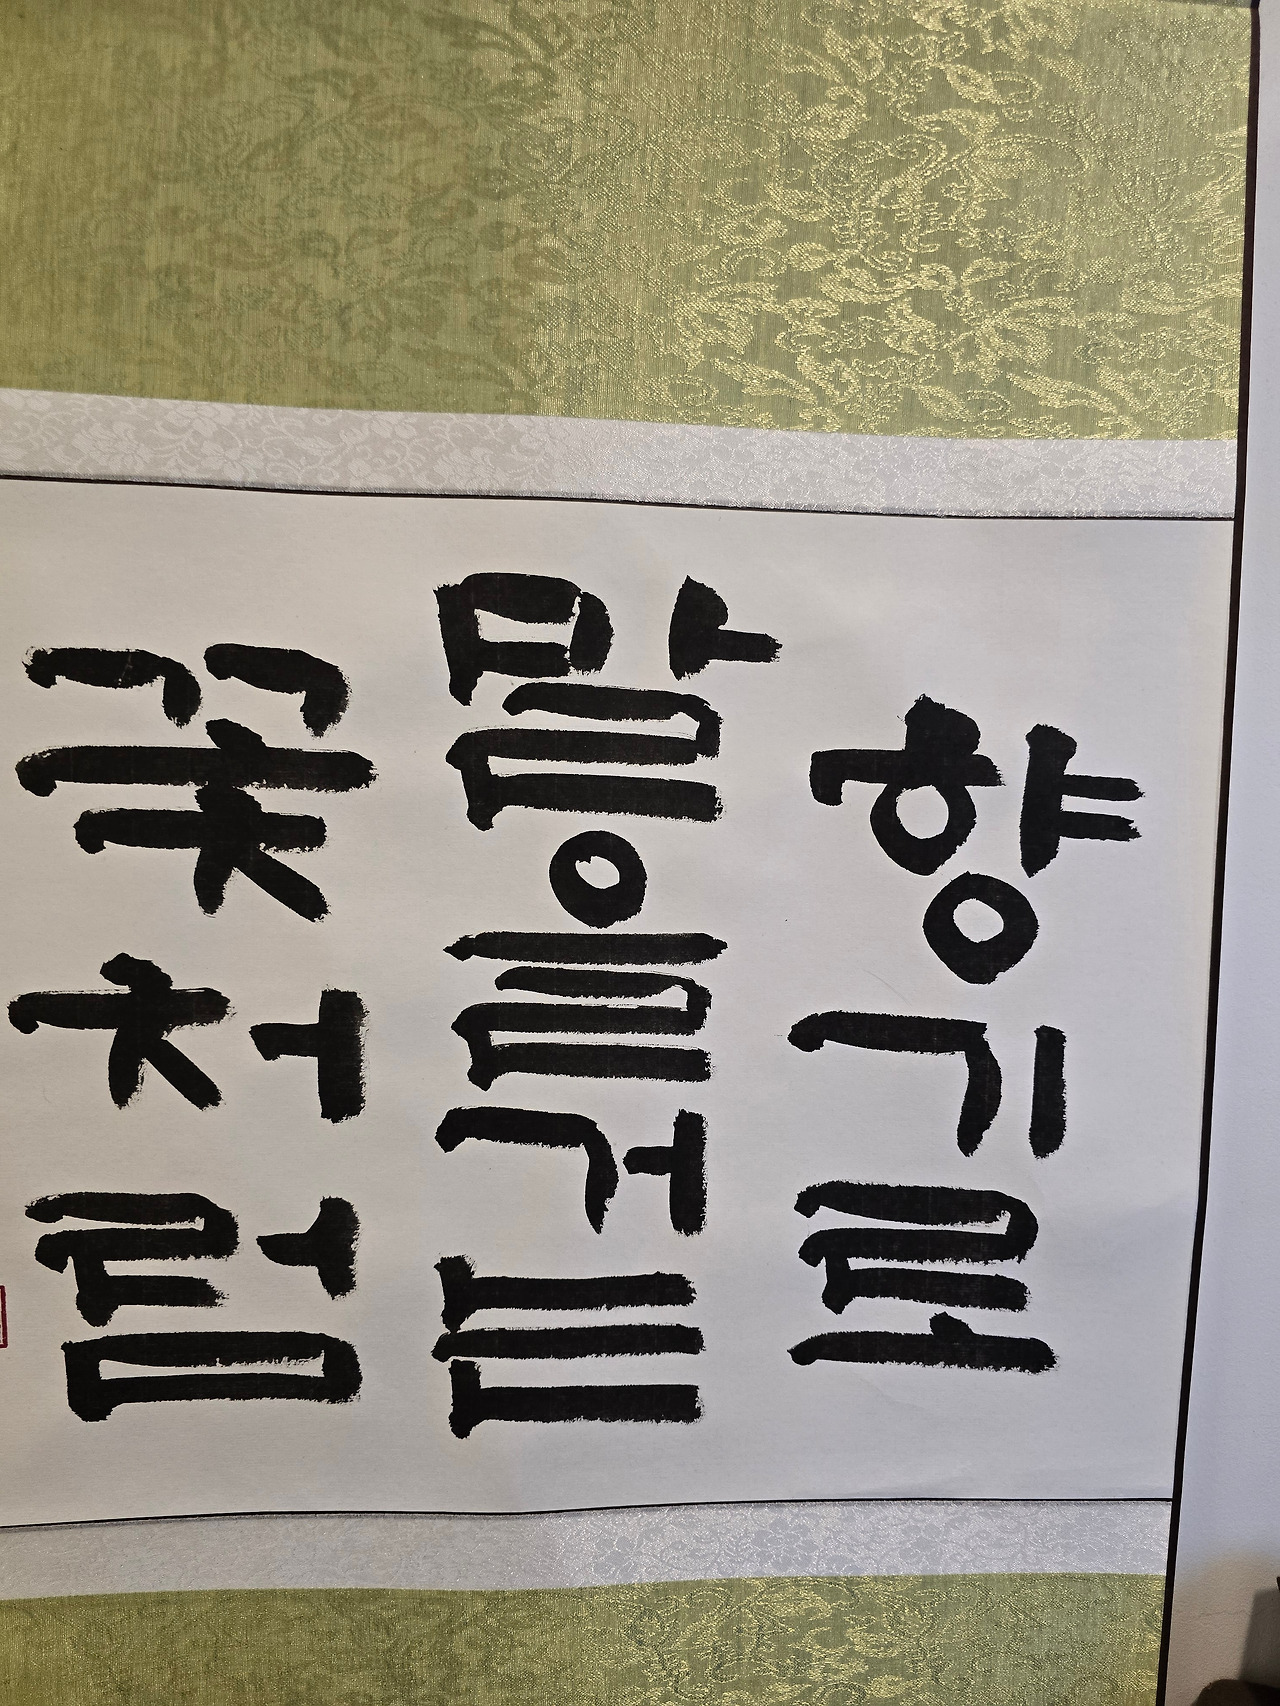 향기로
말을거는
꽃처럼